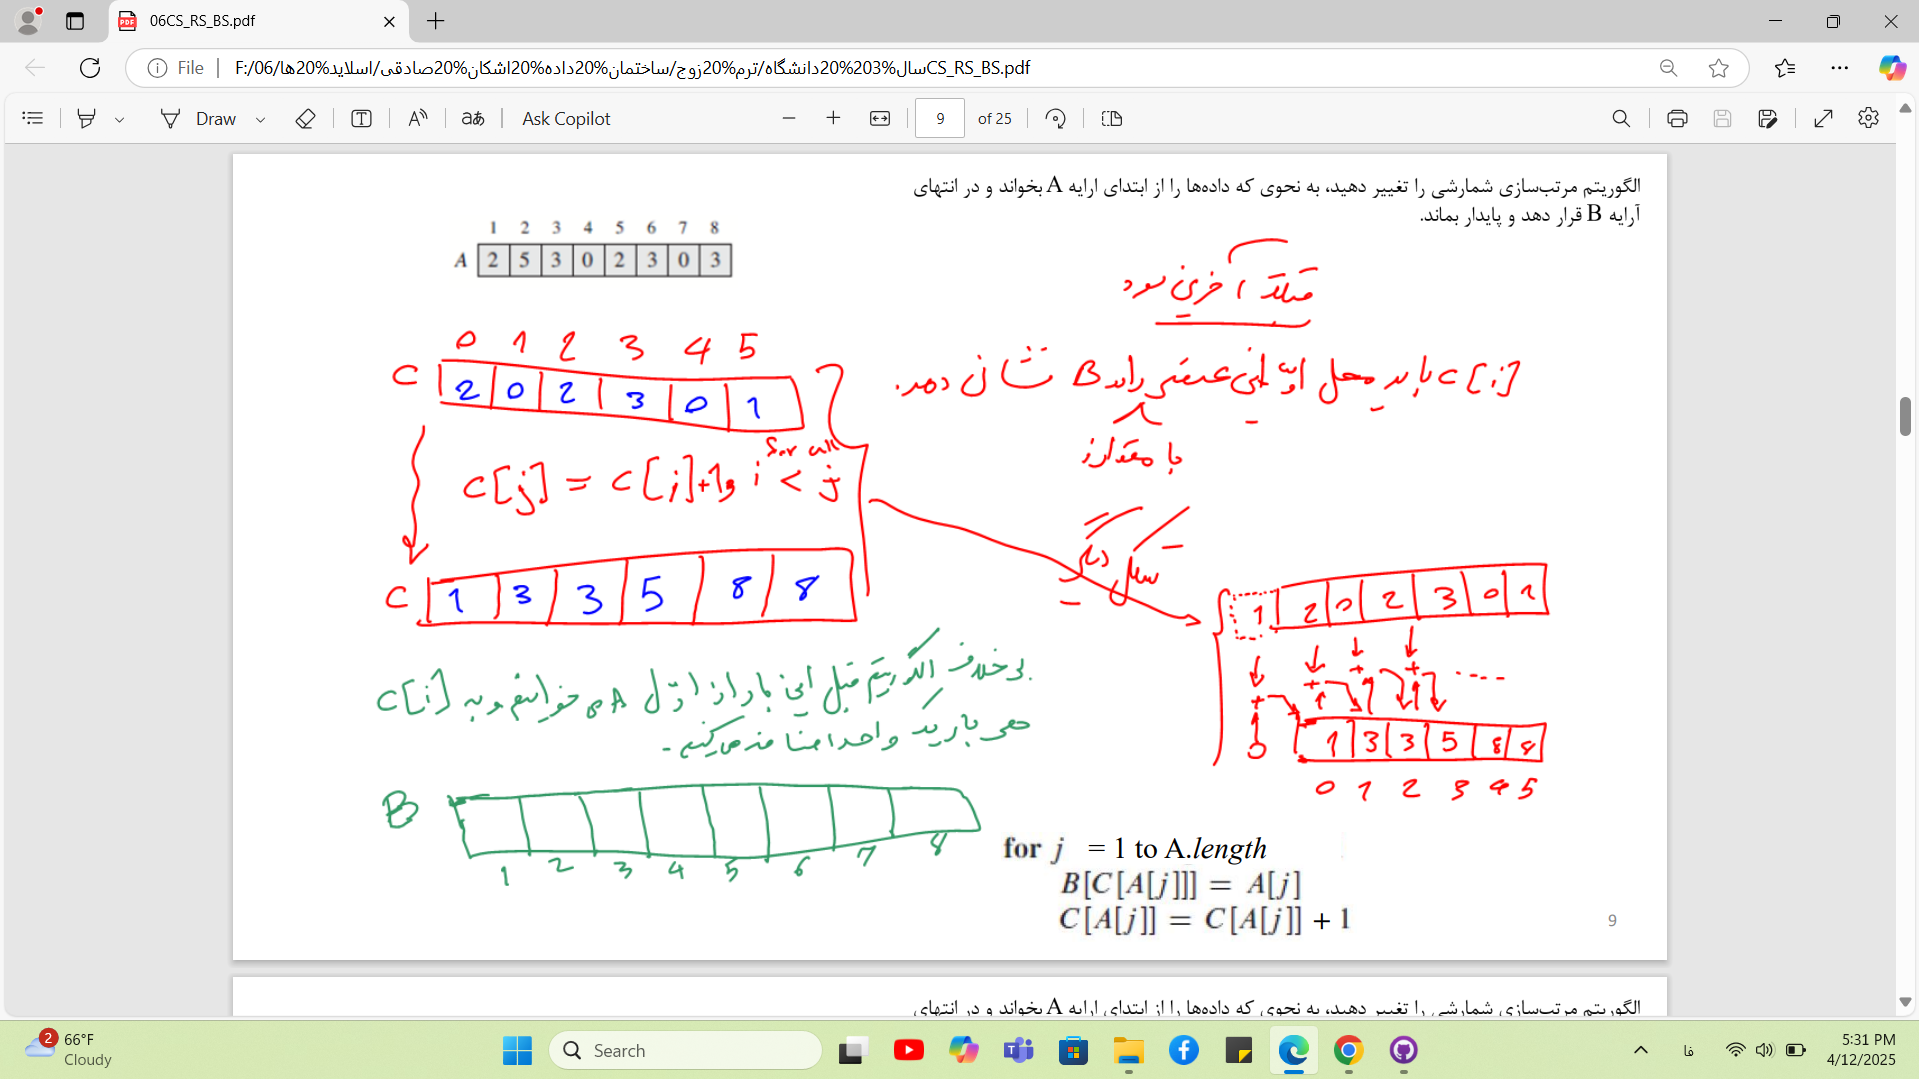 06CS_RS_BS.pdf
File
F:/06/سال%203%20دانشگاه/ترم%20زوج/ساختمان%20داده%20اشکان%20صادقی/اسلاید%20ها/CS_RS_BS.pdf
Draw
Ask Copilot
9 of 25
الگوریتم مرتب‌سازی شمارشی را تغییر دهید، به نحوی که داده‌ها را از ابتدای ارایه A بخواند و در انتهای
آرایه B قرار دهد و پایدار بماند.
1 2 3 4 5 6 7 8
A 2 5 3 0 2 3 0 3
0 1 2 3 4 5
C 2 0 2 3 0 1
C[i] باید محل اولین عنصر را در B نشان دهد.
با مقدار i
for all
C[j] = C[i]+1 و i < j
C 1 3 3 5 8 8
شکل دیگر
1 2 0 2 3 0 1
+ + + + ....
0 1 3 3 5 8 8
0 1 2 3 4 5
برخلاف الگوریتم قبل این بار از اول A می‌خوانیم و به C[i]
هر بار یک واحد اضافه می‌کنیم.
B
1 2 3 4 5 6 7 8
for j = 1 to A.length
B[C[A[j]]] = A[j]
C[A[j]] = C[A[j]] + 1
9
الگوریتم مرتب‌سازی شمارشی را تغییر دهید، به نحوی که داده‌ها را از ابتدای ارایه A بخواند و در انتهای
2
66°F
Cloudy
Search
فا
5:31 PM
4/12/2025